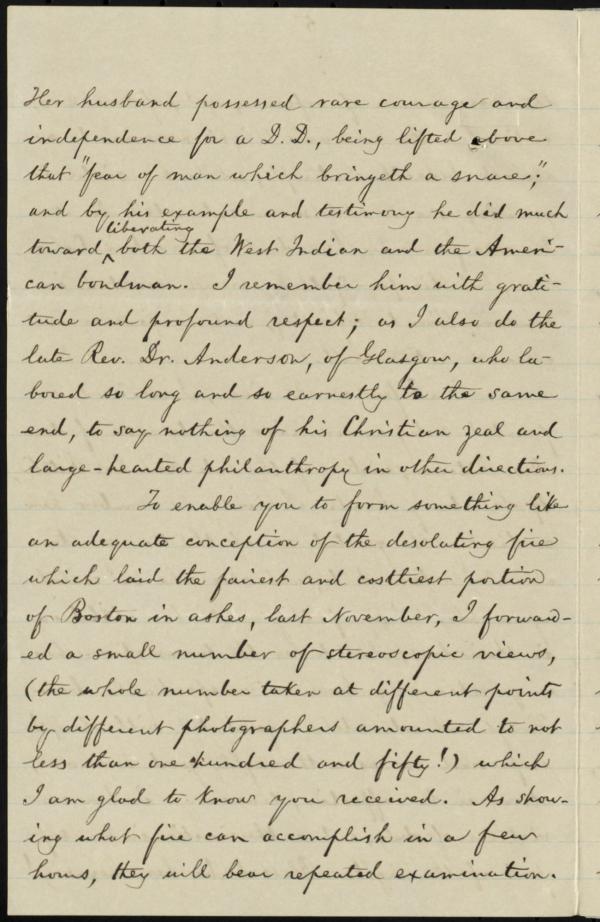 Her husband possessed rare courage and
independence for a D. D., being lifted above
that "fear of man which bringeth a snare;"
and by his example and testimony he did much
liberating
toward ‸ both the West Indian and the Ameri-
can bondman. I remember him with grati-
tude and profound respect; as I also do the
late Rev. Dr. Anderson, of Glasgow, who la-
bored so long and so earnestly to the same
end, to say nothing of his Christian zeal and
large-hearted philanthropy in other directions.
To enable you to form something like
an adequate conception of the desolating fire
which laid the fairest and costliest portion
of Boston in ashes, last November, I forward-
ed a small number of stereoscopic views,
(the whole number taken at different points
by different photographers amounted to not
less than one hundred and fifty!) which
I am glad to know you received. As show-
ing what fire can accomplish in a few
hours, they will bear repeated examination.